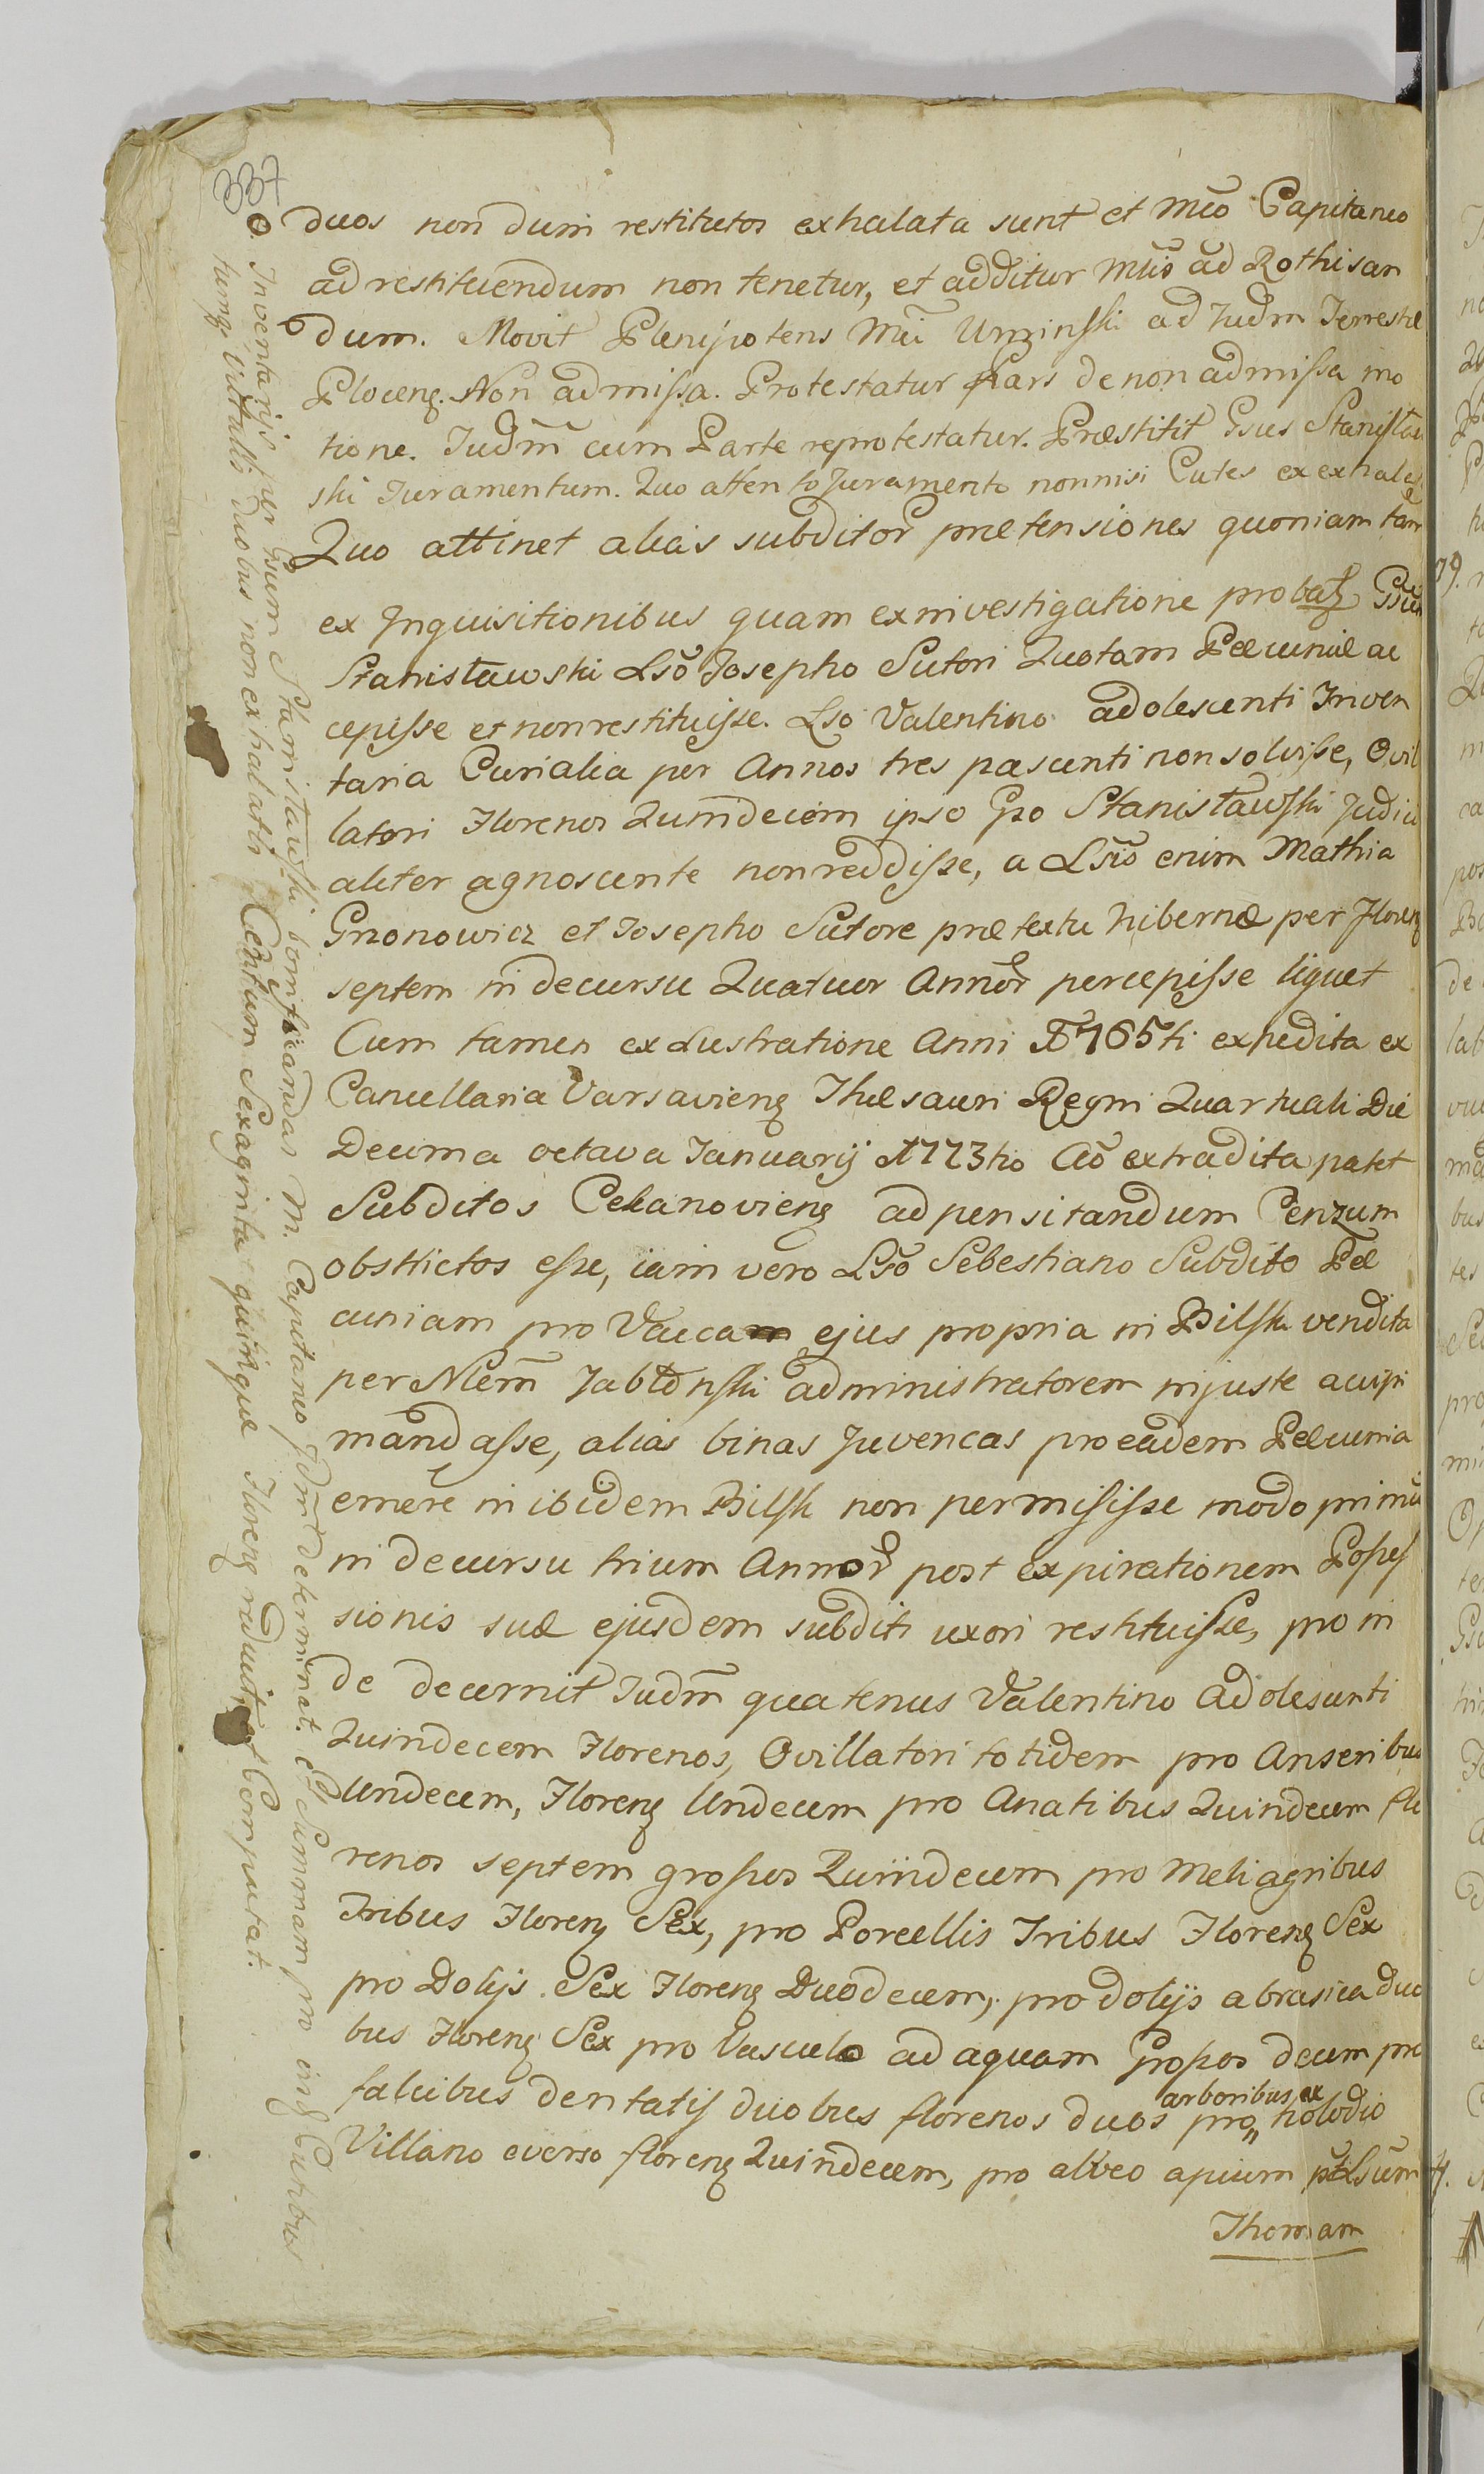 337
duos non dum restitutos exhalata sunt et Mco Capitaneo
ad restituendum non tenetur, et additur Mcis ad Rothisan
dum. Movit Plenipotens Mci Urzinski ad Judm Terrestre
Plocens. Non admissa. Protestatur Pars de non admissa mo
tione. Judm cum Parte reprotestatur. Præstitit Gsus Stanisław
ski Juramentum. Quo attento Juramento nonnisi Cutes ex exhalat
Quo attinet alias subditor prætensiones quoniam tam
ex Inquisitionibus quam ex investigatione probatʒ Gsum
Stanisławski Lso Josepho Sutori Quotam Pecuniæ ac
cepisse et non restituisse. Lso Valentino adolescenti Inven
taria Curialia per Annos tres pascenti non solvisse, Ovil
latori Florenos Quindecim ipso Gso Stanisławski Judici
aliter agnoscente non reddisse, a Lsis enim Mathia
Gnonowicz et Josepho Sutore prætextu hibernæ per Florenʒ
septem in decursu Quatuor Annor percepisse liquet
Cum tamen ex Lustratione Anni 1765ti expedita ex
Cancellaria Varsaviensʒ Thesauri Regni Quartuali Die
Decima octava Januarij 1773tio Ao extradita patet
Subditos Cekanoviensʒ ad pensitandum Cenzum
obstrictos esse, iam vero Lso Sebestiano Subdito Pec
cuniam pro Vacam ejus propria in Bilsk vendita
per Nlem Jabłonski administratorem injuste accipi
mandasse, alias binas Juvencas pro eadem Pecunia
emere in ibidem Bilsk non permisisse modo primu
in decursu trium Annor post expirationem Posses
sionis suæ ejusdem subditi uxori restituisse, pro in
de decernit Judm quatenus Valentino Adolescenti
Quindecem Florenos, Ovillatori totidem pro Anseribus
Undecem, Florenʒ Undecem pro Anatibus Quindecem flo
renos septem grossos Quindecem pro Meliagribus
Tribus Florenʒ Sex, pro Porcellis Tribus Florenʒ Sex
pro Dolijs Sex Florenʒ Duodecem, pro dolijs a brasica duo
bus Florenʒ Sex pro Vasculo ad aquam Grossos decem pro
falcibus dentatis duobus florenos duos pro arboribus ex holodio
Villano everso florenʒ Quindecem, pro alveo apium per Lsum
Thomam
Inventarijs per Gsum Stanisławski bonificandas M. Capitaneo Judm determinat. et Summam pro ins Cutibus
tumqʒ Vitulis duobus non exhalatis Centum Sexaginta quinque Florenʒ reducit, et Computat.